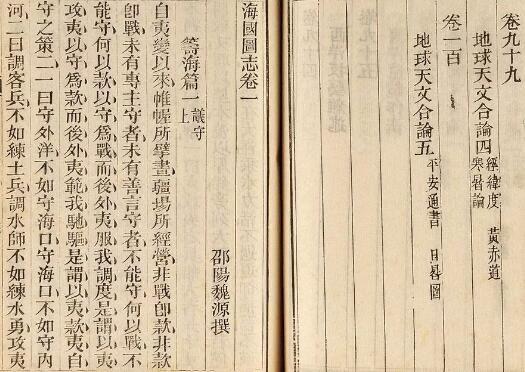 卷九十九
地球天文合論四 經緯度 黃赤道 寒暑論
卷一百
地球天文合論五 平安通書 日晷圖
海國圖志卷一
邵陽魏源撰
籌海篇一 議守上
自夷變以來帷幄所擘畫疆場所經營非戰卽款非款
卽戰未有專主守者未有善言守者不能守何以戰不
能守何以款以守為戰而後外夷服我調度是謂以夷
攻夷以守為款而後外夷範我馳驅是謂以夷款夷自
守之策二一曰守外洋不如守海口守海口不如守內
河二曰調客兵不如練土兵調水師不如練水勇攻夷